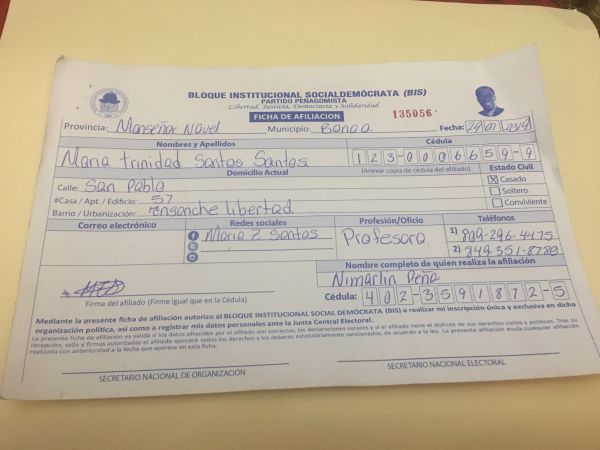 BLOQUE INSTITUCIONAL SOCIALDEMÓCRATA (BIS)
PARTIDO PEÑAGOMISTA
Libertad, Justicia, Democracia y Solidaridad
FICHA DE AFILIACION
135056
Provincia: Monseñor Nouel Municipio: Bonao. Fecha: 29/07/2019
Nombres y Apellidos Cédula
Maria Trinidad Santos Santos 123-0006659-9
Domicilio Actual (Anexar copia de cédula del afiliado) Estado Civil
Calle: San Pablo
X Casado
#Casa / Apt. / Edificio: 57
Soltero
Barrio / Urbanización: ensanche libertad.
Conviviente
Correo electrónico Redes sociales Profesión/Oficio Teléfonos
Maria Santos Profesora. 1) 809-296-4475
2) 849.351-8789
Nombre completo de quien realiza la afiliación
Nimarlin Peña
Firma del afiliado (Firme igual que en la Cédula)
Cédula: 402-3591872-5
Mediante la presente ficha de afiliación autorizo al BLOQUE INSTITUCIONAL SOCIAL DEMÓCRATA (BIS) a realizar mi inscripción única y exclusiva en dicha
organización política, así como a registrar mis datos personales ante la Junta Central Electoral.
La presente ficha de afiliación es válida si los datos ofrecidos por el afiliado son correctos, las declaraciones veraces y si el afiliado tiene el disfrute de sus derechos civiles y políticos. Tras su
recepción, sello y firmas autorizadas el afiliado ejercerá todos los derechos y los deberes estatutariamente sancionados, de acuerdo a la ley. La presente afiliación anula cualquier afiliación
realizada con anterioridad a la fecha que aparece en esta ficha.
SECRETARIO NACIONAL DE ORGANIZACIÓN
SECRETARIO NACIONAL ELECTORAL